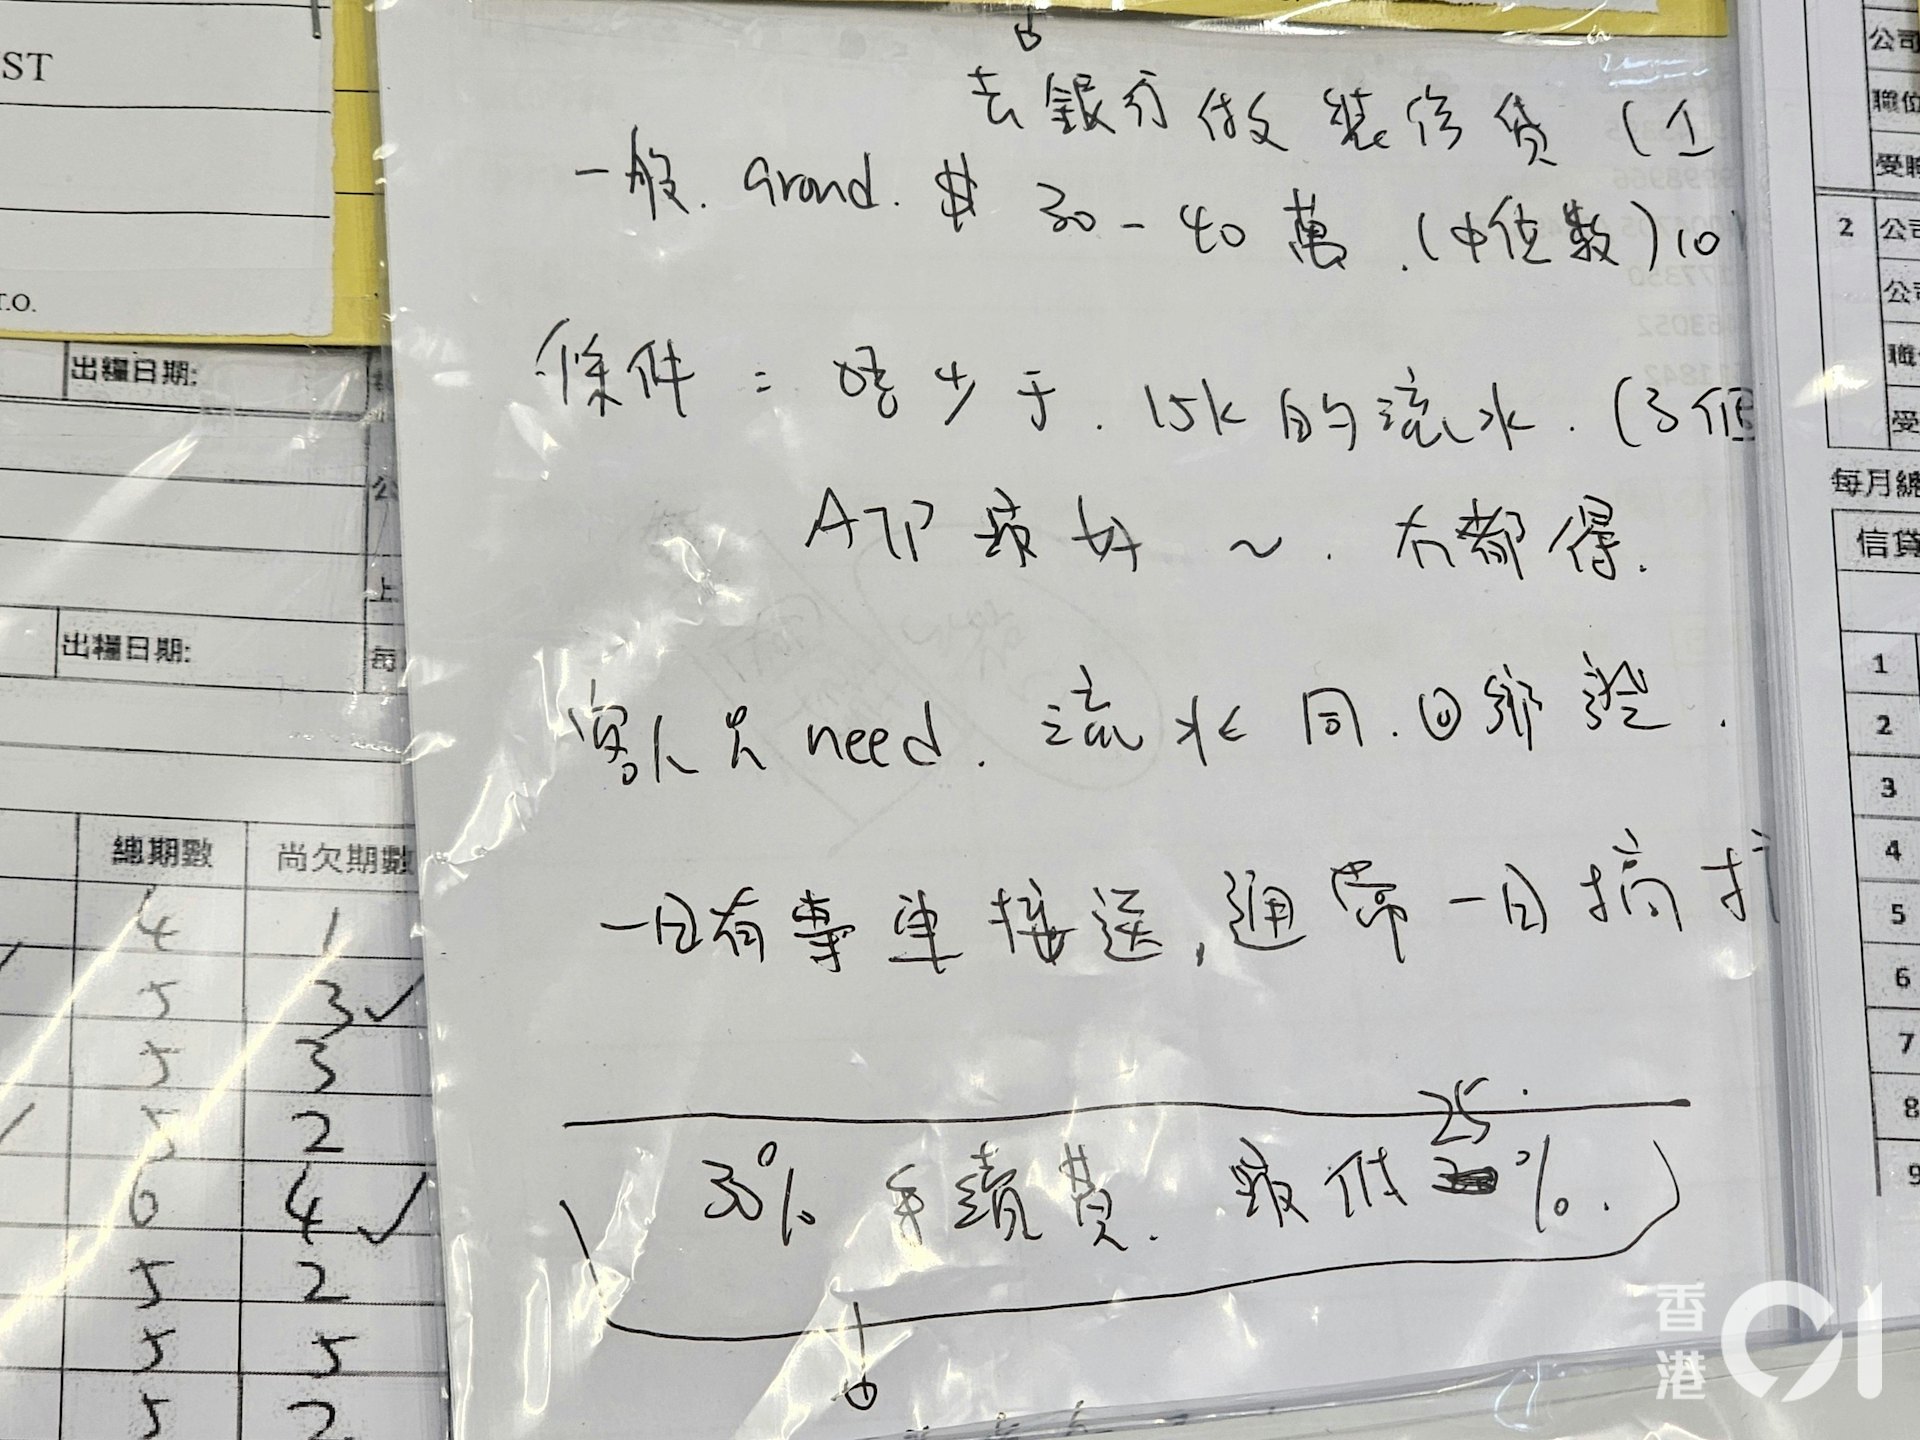 ST
T.O.
出糧日期:
出糧日期:
上
每
總期數 尚欠期數
4 1
5 3✓
5 3
5 2
6 4✓
5 2
5 5
5 2
去銀行做裝修貸(
一般. Grand. $ 30-40萬.(中位數)10
條件: 唔少于. 15k的流水.(3個
ATP 最好 ~. 冇都得.
客人只need. 流水同.回鄉證.
一日有專車接送,通常一日搞
30% 手續費. 最低 25%.
公司
職位
受聘
2 公司
公司
職
受
每月總
信貸
1
2
3
4
5
6
7
8
9
香港01